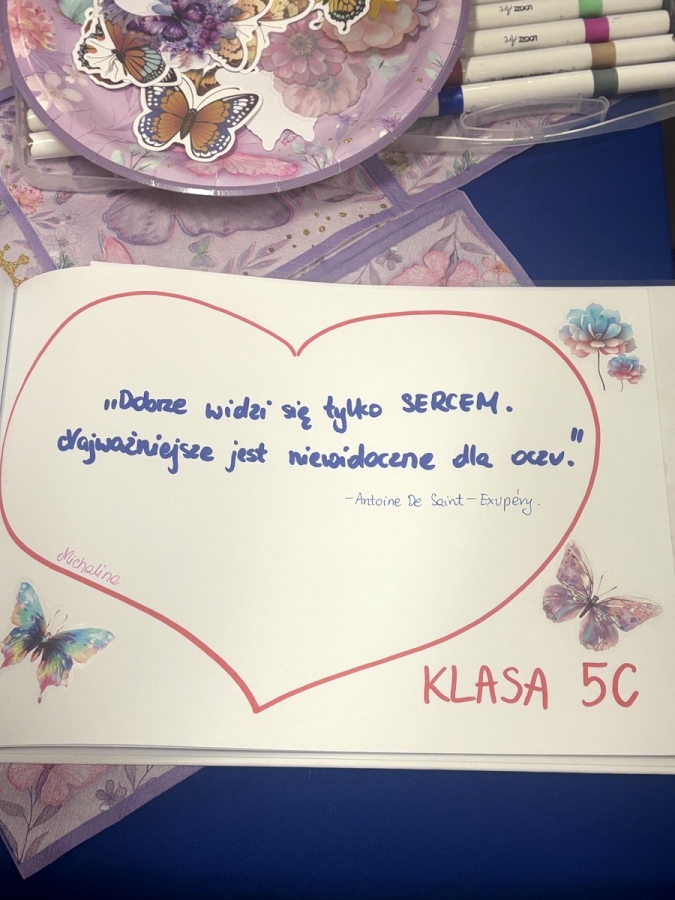 „Dobrze widzi się tylko SERCEM.
Najważniejsze jest niewidoczne dla oczu."
-Antoine De Saint-Exupéry.
Michalina
KLASA 5C